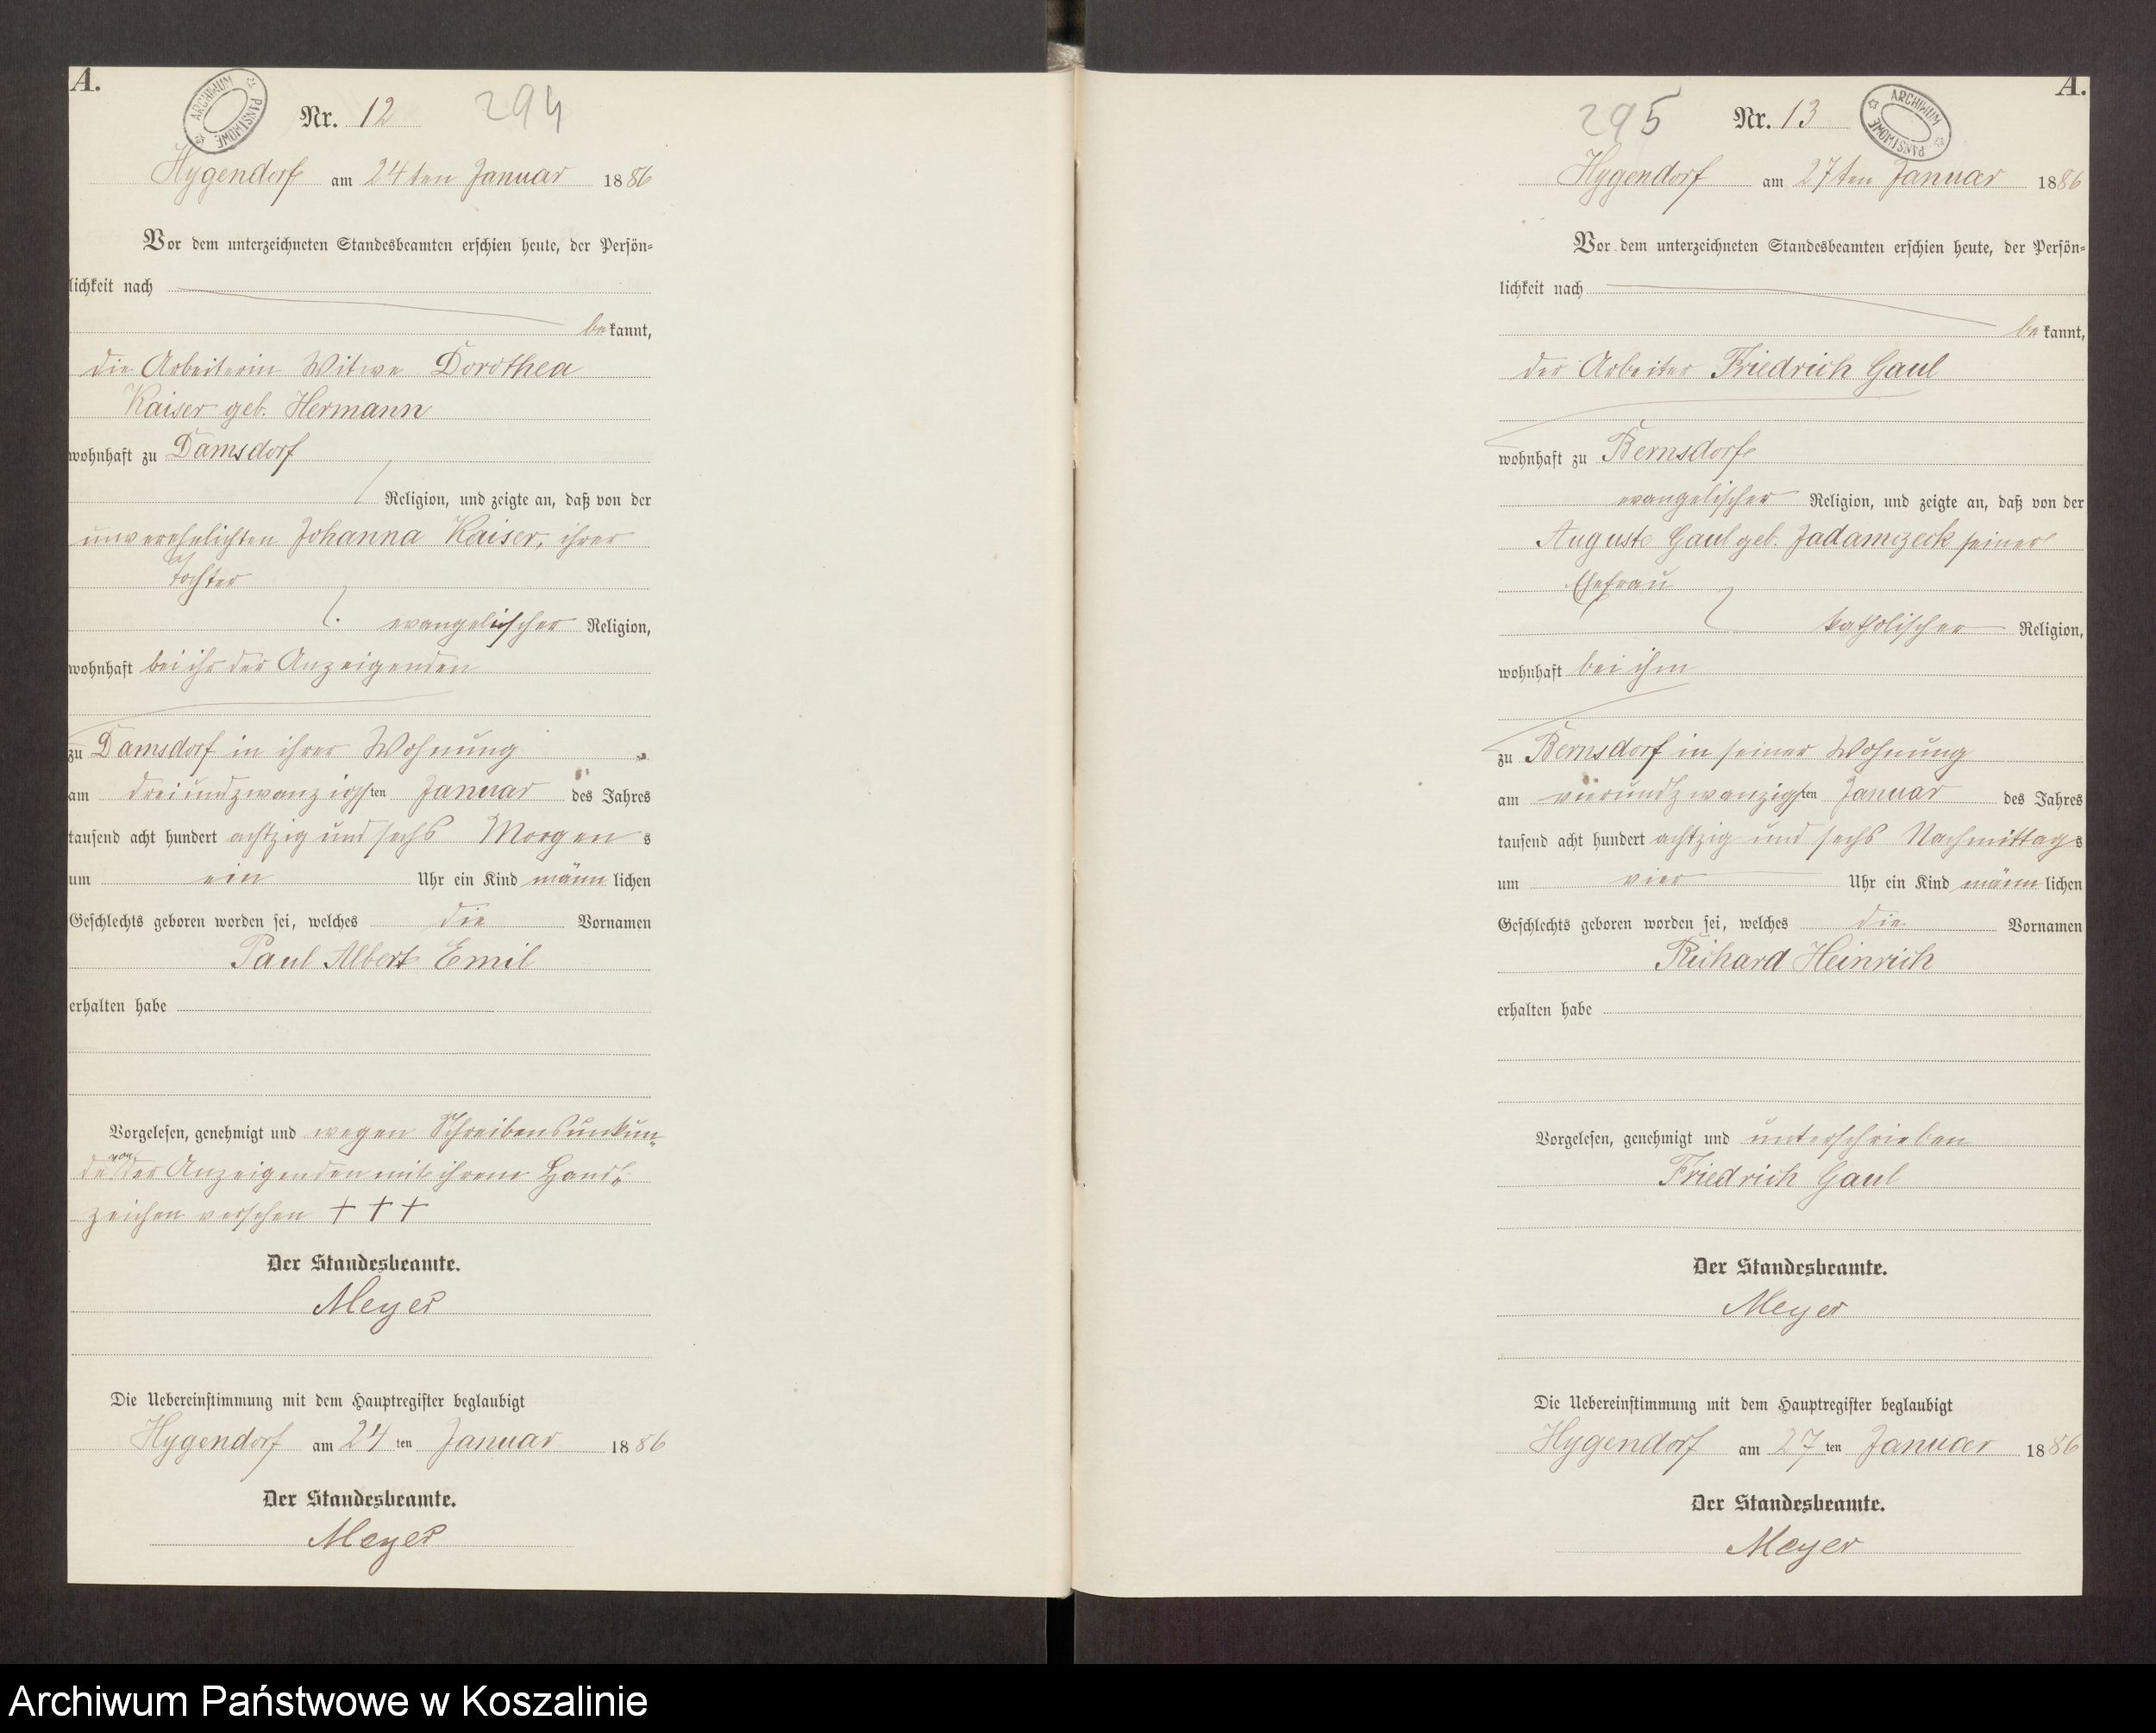 A.
ARCHIWUM PAŃSTWOWE
Nr. 12 294
Hygendorf am 24ten Januar 1886
Vor dem unterzeichneten Standesbeamten erschien heute, der Persön=
lichkeit nach
bekannt,
die Arbeiterin Witwe Dorothea
Kaiser geb. Hermann
wohnhaft zu Damsdorf
Religion, und zeigte an, daß von der
unverehelichten Johanna Kaiser, ihrer
Tochter
evangelischer Religion,
wohnhaft bei ihr der Anzeigenden
zu Damsdorf in ihrer Wohnung
am dreiundzwanzigsten Januar des Jahres
tausend acht hundert achtzig und sechs Morgens
um ein Uhr ein Kind männlichen
Geschlechts geboren worden sei, welches die Vornamen
Paul Albert Emil
erhalten habe
Vorgelesen, genehmigt und wegen Schreibensunkun=
de von der Anzeigenden mit ihrem Hand=
zeichen versehen + + +
Der Standesbeamte.
Meyer
Die Uebereinstimmung mit dem Hauptregister beglaubigt
Hygendorf am 24ten Januar 1886
Der Standesbeamte.
Meyer
A.
295 Nr. 13
ARCHIWUM PAŃSTWOWE
Hygendorf am 27ten Januar 1886
Vor dem unterzeichneten Standesbeamten erschien heute, der Persön=
lichkeit nach
bekannt,
der Arbeiter Friedrich Gaul
wohnhaft zu Bernsdorf
evangelischer Religion, und zeigte an, daß von der
Auguste Gaul geb. Jadamczeck seiner
Ehefrau
katholischer Religion,
wohnhaft bei ihm
zu Bernsdorf in seiner Wohnung
am vierundzwanzigsten Januar des Jahres
tausend acht hundert achtzig und sechs Nachmittags
um vier Uhr ein Kind männlichen
Geschlechts geboren worden sei, welches die Vornamen
Richard Heinrich
erhalten habe
Vorgelesen, genehmigt und unterschrieben
Friedrich Gaul
Der Standesbeamte.
Meyer
Die Uebereinstimmung mit dem Hauptregister beglaubigt
Hygendorf am 27ten Januar 1886
Der Standesbeamte.
Meyer
Archiwum Państwowe w Koszalinie